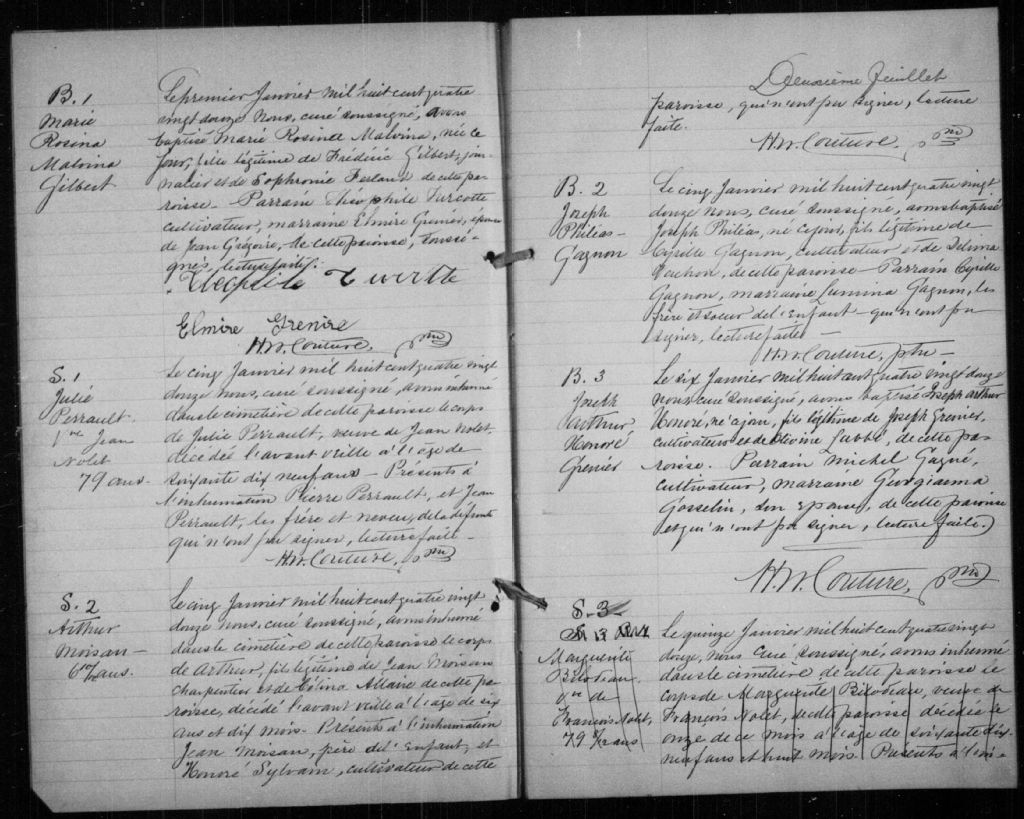 B. 1
Marie
Rosina
Malvina
Gilbert
Le premier Janvier mil huit cent quatre
vingt douze Nous, curé soussigné, avons
baptisé Marie Rosina Malvina, née ce
jour, fille légitime de Frédéric Gilbert, jour-
nalier et de Sophronie Ferland de cette pa-
roisse - Parrain Théophile Turcotte
cultivateur, marraine Elmire Grenier, épouse
de Jean Grégoire, de cette paroisse, soussi-
gnés, lecture faite.
Elmire Grenire
H. W. Couture, ptre
S. 1
Julie
Perrault
Vve Jean
Nolet
79 ans.
Le cinq Janvier mil huit cent quatre vingt
douze nous, curé soussigné, avons inhumé
dans le cimetière de cette paroisse le corps
de Julie Perrault, veuve de Jean Nolet,
décédée l'avant veille à l'âge de
soixante dix neuf ans - Présents à
l'inhumation Pierre Perrault, et Jean
Perrault, les frère et neveu, de la défunte
qui n'ont pu signer, lecture faite -
H. W. Couture, ptre
S. 2
Arthur
Moisan -
6 ans.
Le cinq Janvier mil huit cent quatre vingt
douze nous, curé soussigné, avons inhumé
dans le cimetière de cette paroisse le corps
de Arthur, fils légitime de Jean Moisan
charpentier et de Célina Allaire de cette pa-
roisse, décédé l'avant veille à l'âge de six
ans et dix mois - Présents à l'inhumation
Jean Moisan, père de l'Enfant, et
Honoré Sylvain, cultivateur de cette
Deuxième feuillet
paroisse, qui n'ont pu signer, lecture
faite.
H. W. Couture, ptre
B. 2
Joseph
Philéas -
Gagnon
Le cinq Janvier mil huit cent quatre vingt
douze nous, curé soussigné, avons baptisé
Joseph Philéas, né ce jour, fils légitime de
Cyrille Gagnon, cultivateur et de Delima
Vachon, de cette paroisse - Parrain Cyrille
Gagnon, marraine Lumina Gagnon, les
frère et soeur de l'Enfant - qui n'ont pu
signer, lecture faite -
H. W. Couture, ptre -
B. 3
Joseph
Arthur
Honoré
Grenier
Le six Janvier mil huit cent quatre vingt douze
nous, curé soussigné, avons baptisé Joseph Arthur
Honoré, né ce jour, fils légitime de Joseph Grenier,
cultivateur et de Divine Labbé, de cette pa-
roisse. Parrain Michel Gagné,
cultivateur, marraine Georgianna
Gosselin, son épouse, de cette paroisse
et qui n'ont pu signer, lecture faite.
H. W. Couture, ptre
S. 3
Marguerite
Bilodeau
Vve de
François Nolet,
79 ans
Le quinze Janvier mil huit cent quatre vingt
douze, nous curé soussigné, avons inhumé
dans le cimetière de cette paroisse le
corps de Marguerite Bilodeau, veuve de
François Nolet, de cette paroisse décédée le
onze de ce mois à l'âge de soixante dix
neuf ans et huit mois. Présents à l'in-